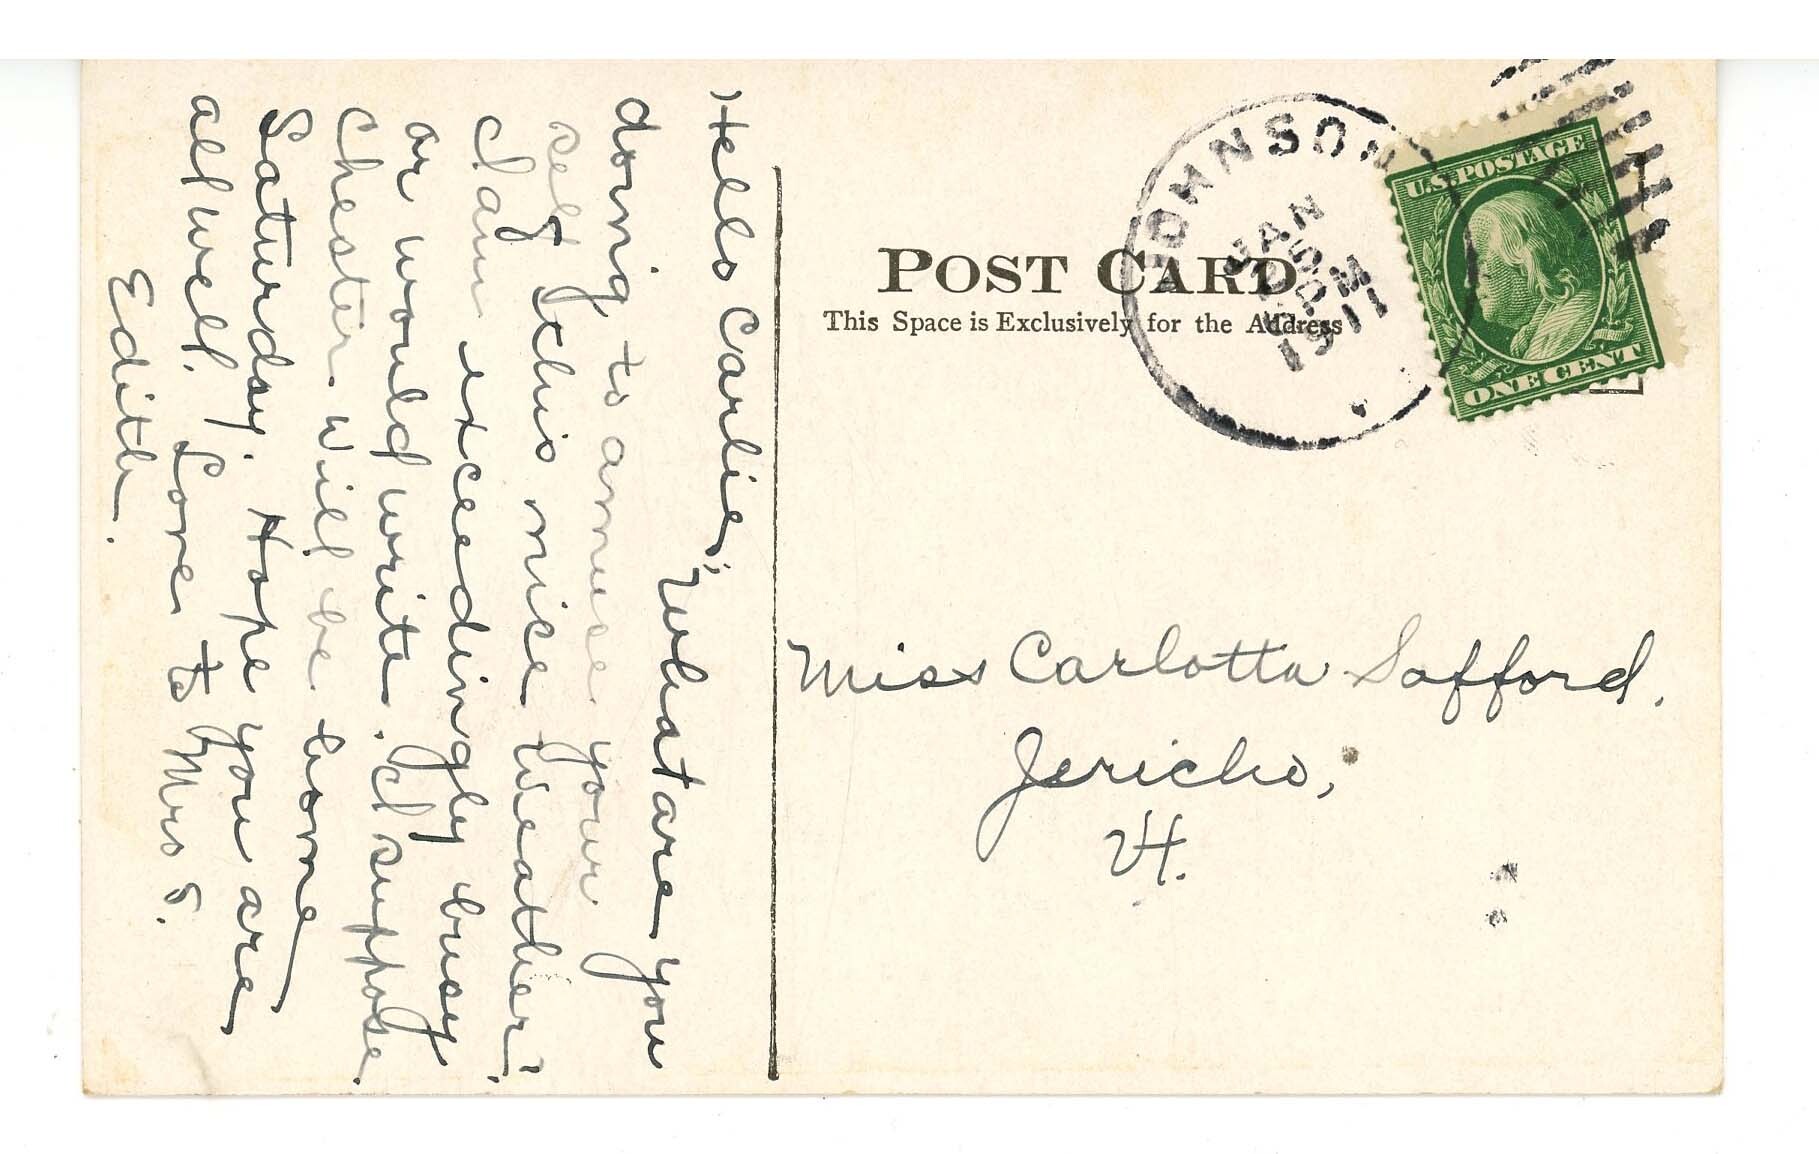 Hello Carlie;
What are you
doing to amuse your
self this nice weather?
I am exceedingly busy
or would write. I suppose
Chester will be home
Saturday. Hope you are
all well. Love to Mrs S.
Edith.
POST CARD
This Space is Exclusively for the Address
JOHNSON
JAN
5
PM
1911
U.S. POSTAGE
ONE CENT
Miss Carlotta Safford,
Jericho,
Vt.